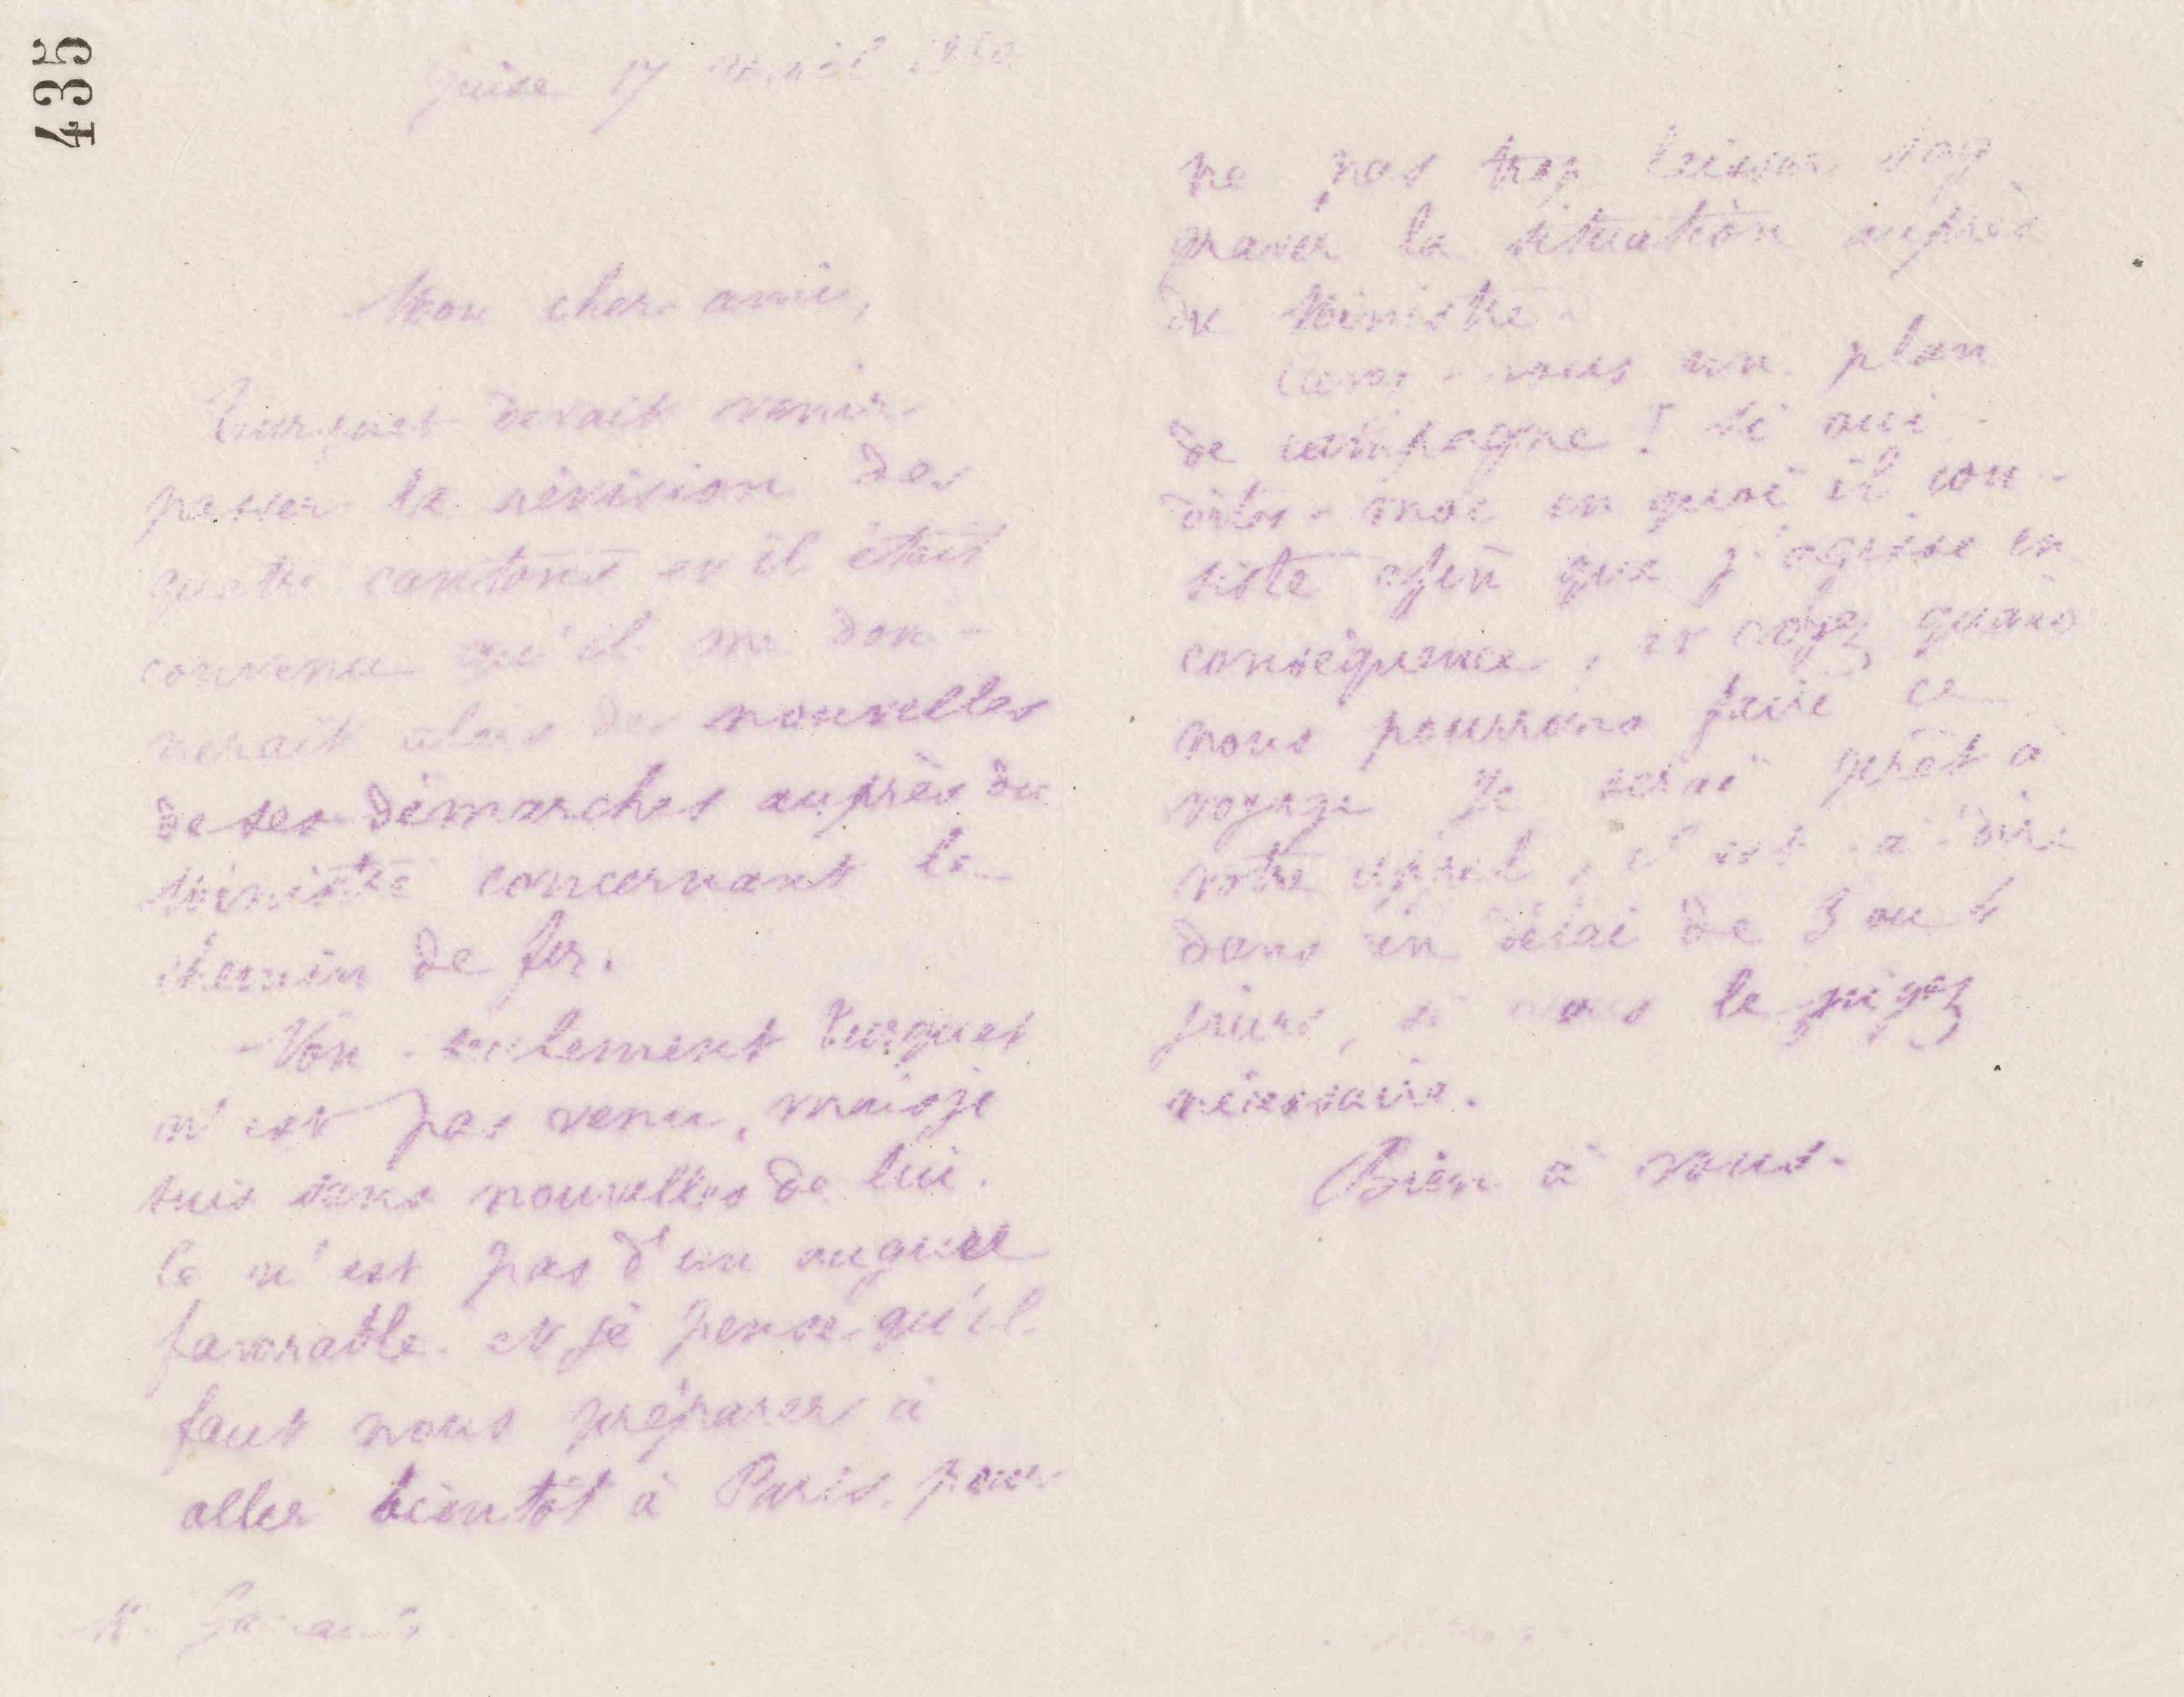 435
Guise 17 avril
Mon cher ami,
Turquet devait venir
passer la révision des
quatre cantons et il était
convenu qu'il me don-
nerait alors des nouvelles
de ses démarches auprès du
Ministre concernant le
chemin de fer.
Non-seulement Turquet
n'est pas venu, mais je
suis sans nouvelles de lui.
Ce n'est pas d'un augure
favorable et je pense qu'il
faut nous préparer à
aller bientôt à Paris pour
M.
ne pas trop laisser s'ag
graver la situation auprès
du Ministre.
Avez-vous un plan
de campagne ? Si oui
dites-moi en quoi il con-
siste afin que j'agisse en
conséquence, et voyez quand
nous pourrons faire ce
voyage Je serai prêt à
votre appel, c'est-à-dire
dans un délai de 3 ou 4
jours, si vous le jugez
nécessaire.
Bien à vous.